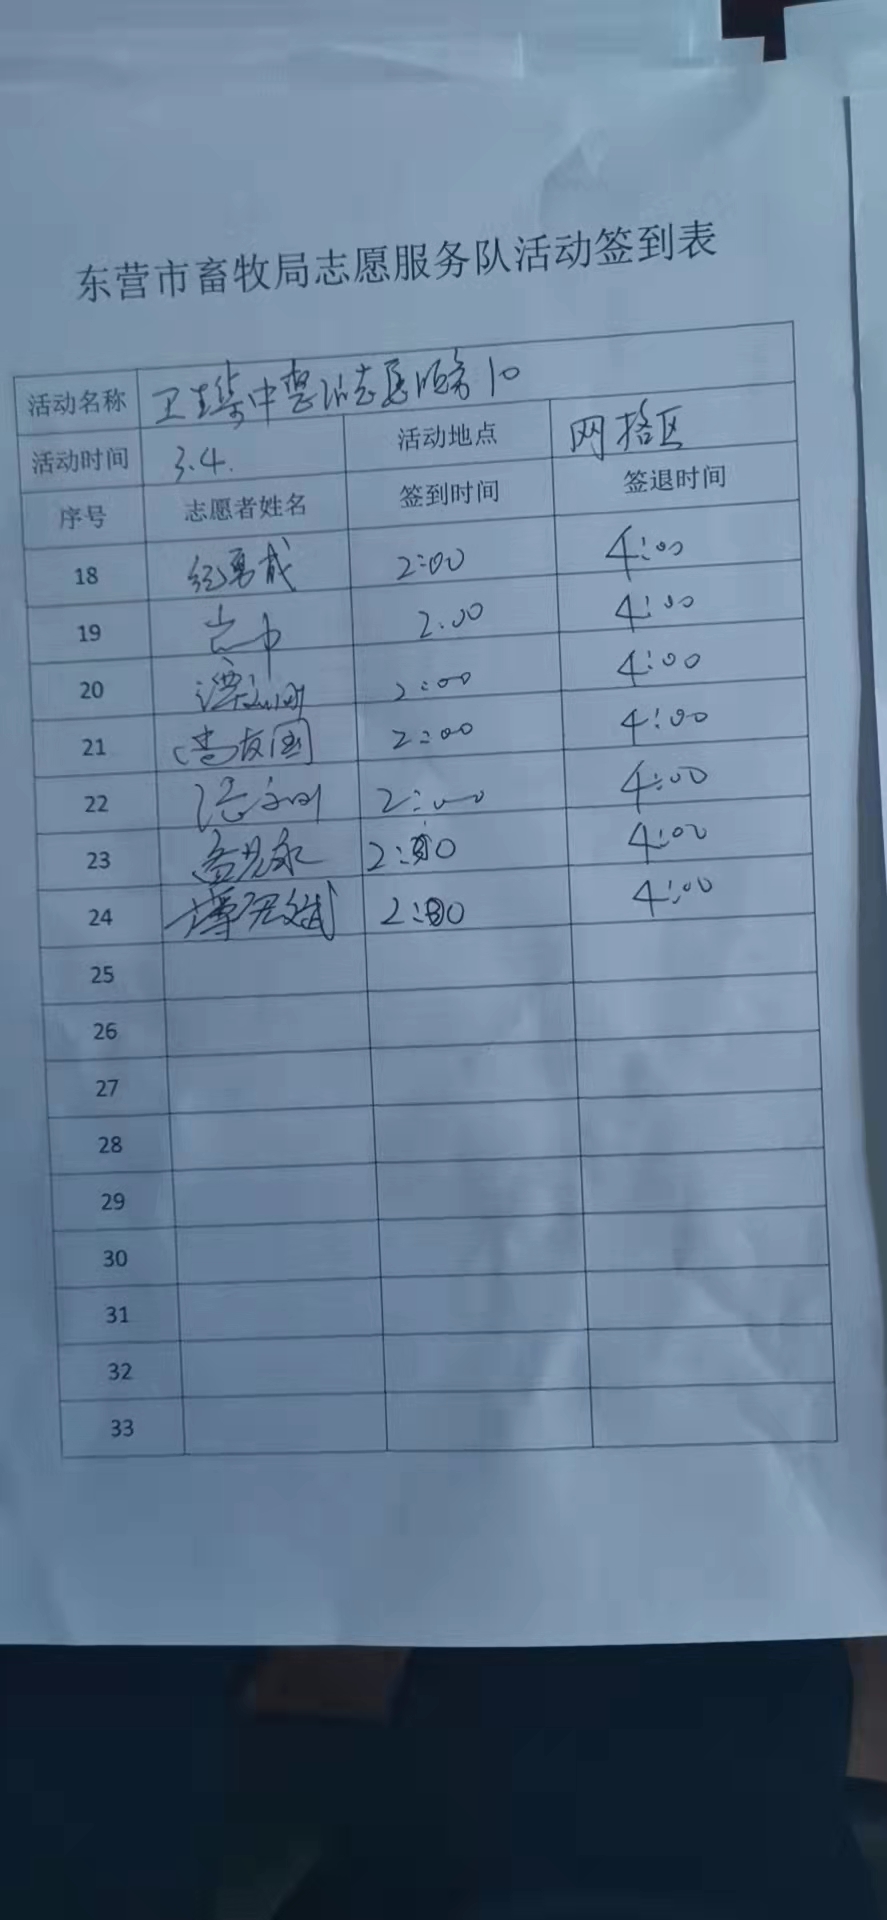 东营市畜牧局志愿服务队活动签到表
活动名称 卫生集中整治志愿服务10
活动时间 3.4. 活动地点 网格区
序号 志愿者姓名 签到时间 签退时间
18 2:00 4:00
19 2:00 4:00
20 2:00 4:00
21 2:00 4:00
22 2:00 4:00
23 2:00 4:00
24 2:00 4:00
25
26
27
28
29
30
31
32
33